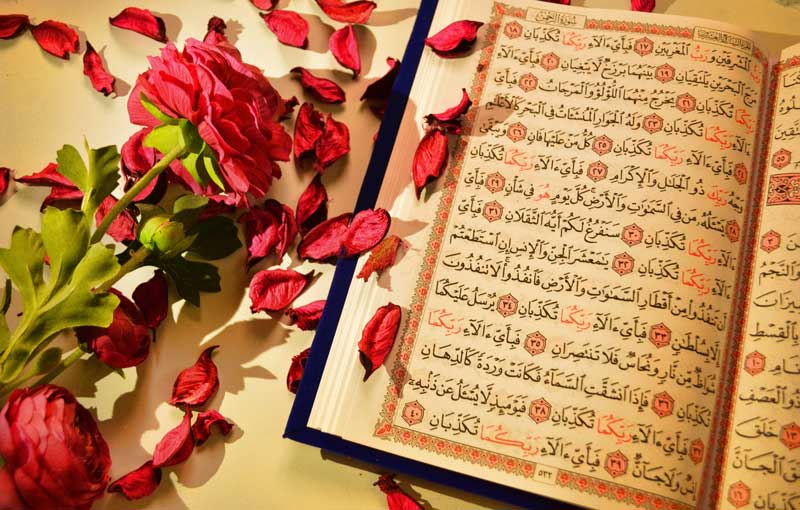 سُورَةُ الرَّحْمٰن
رَبُّ الْمَشْرِقَيْنِ وَرَبُّ الْمَغْرِبَيْنِ ١٧ فَبِأَيِّ ءَالَآءِ رَبِّكُمَا تُكَذِّبَانِ ١٨
مَرَجَ الْبَحْرَيْنِ يَلْتَقِيَانِ ١٩ بَيْنَهُمَا بَرْزَخٌ لَّا يَبْغِيَانِ ٢٠ فَبِأَيِّ ءَالَآءِ
رَبِّكُمَا تُكَذِّبَانِ ٢١ يَخْرُجُ مِنْهُمَا اللُّؤْلُؤُ وَالْمَرْجَانُ ٢٢ فَبِأَيِّ
ءَالَآءِ رَبِّكُمَا تُكَذِّبَانِ ٢٣ وَلَهُ الْجَوَارِ الْمُنشَـَٔاتُ فِي الْبَحْرِ كَالْأَعْلَٰمِ
٢٤ فَبِأَيِّ ءَالَآءِ رَبِّكُمَا تُكَذِّبَانِ ٢٥ كُلُّ مَنْ عَلَيْهَا فَانٍ ٢٦ وَيَبْقَىٰ
وَجْهُ رَبِّكَ ذُو الْجَلَٰلِ وَالْإِكْرَامِ ٢٧ فَبِأَيِّ ءَالَآءِ رَبِّكُمَا تُكَذِّبَانِ ٢٨
يَسْـَٔلُهُ مَن فِي السَّمَٰوَٰتِ وَالْأَرْضِ كُلَّ يَوْمٍ هُوَ فِي شَأْنٍ ٢٩ فَبِأَيِّ
ءَالَآءِ رَبِّكُمَا تُكَذِّبَانِ ٣٠ سَنَفْرُغُ لَكُمْ أَيُّهَ الثَّقَلَانِ ٣١ فَبِأَيِّ
ءَالَآءِ رَبِّكُمَا تُكَذِّبَانِ ٣٢ يَٰمَعْشَرَ الْجِنِّ وَالْإِنسِ إِنِ اسْتَطَعْتُمْ
أَن تَنفُذُوا مِنْ أَقْطَارِ السَّمَٰوَٰتِ وَالْأَرْضِ فَانفُذُوا لَا تَنفُذُونَ
إِلَّا بِسُلْطَٰنٍ ٣٣ فَبِأَيِّ ءَالَآءِ رَبِّكُمَا تُكَذِّبَانِ ٣٤ يُرْسَلُ عَلَيْكُمَا
شُوَاظٌ مِّن نَّارٍ وَنُحَاسٌ فَلَا تَنتَصِرَانِ ٣٥ فَبِأَيِّ ءَالَآءِ رَبِّكُمَا
تُكَذِّبَانِ ٣٦ فَإِذَا انشَقَّتِ السَّمَآءُ فَكَانَتْ وَرْدَةً كَالدِّهَانِ ٣٧
فَبِأَيِّ ءَالَآءِ رَبِّكُمَا تُكَذِّبَانِ ٣٨ فَيَوْمَئِذٍ لَّا يُسْـَٔلُ عَن ذَنۢبِهِ
إِنسٌ وَلَا جَآنٌّ ٣٩ فَبِأَيِّ ءَالَآءِ رَبِّكُمَا تُكَذِّبَانِ ٤٠
٥٣٢
٥٥
وَالنَّجْمُ
بِالْقِسْطِ
الْعَصْفِ
١٣ خَلَقَ
الْجَآنَّ
١٦